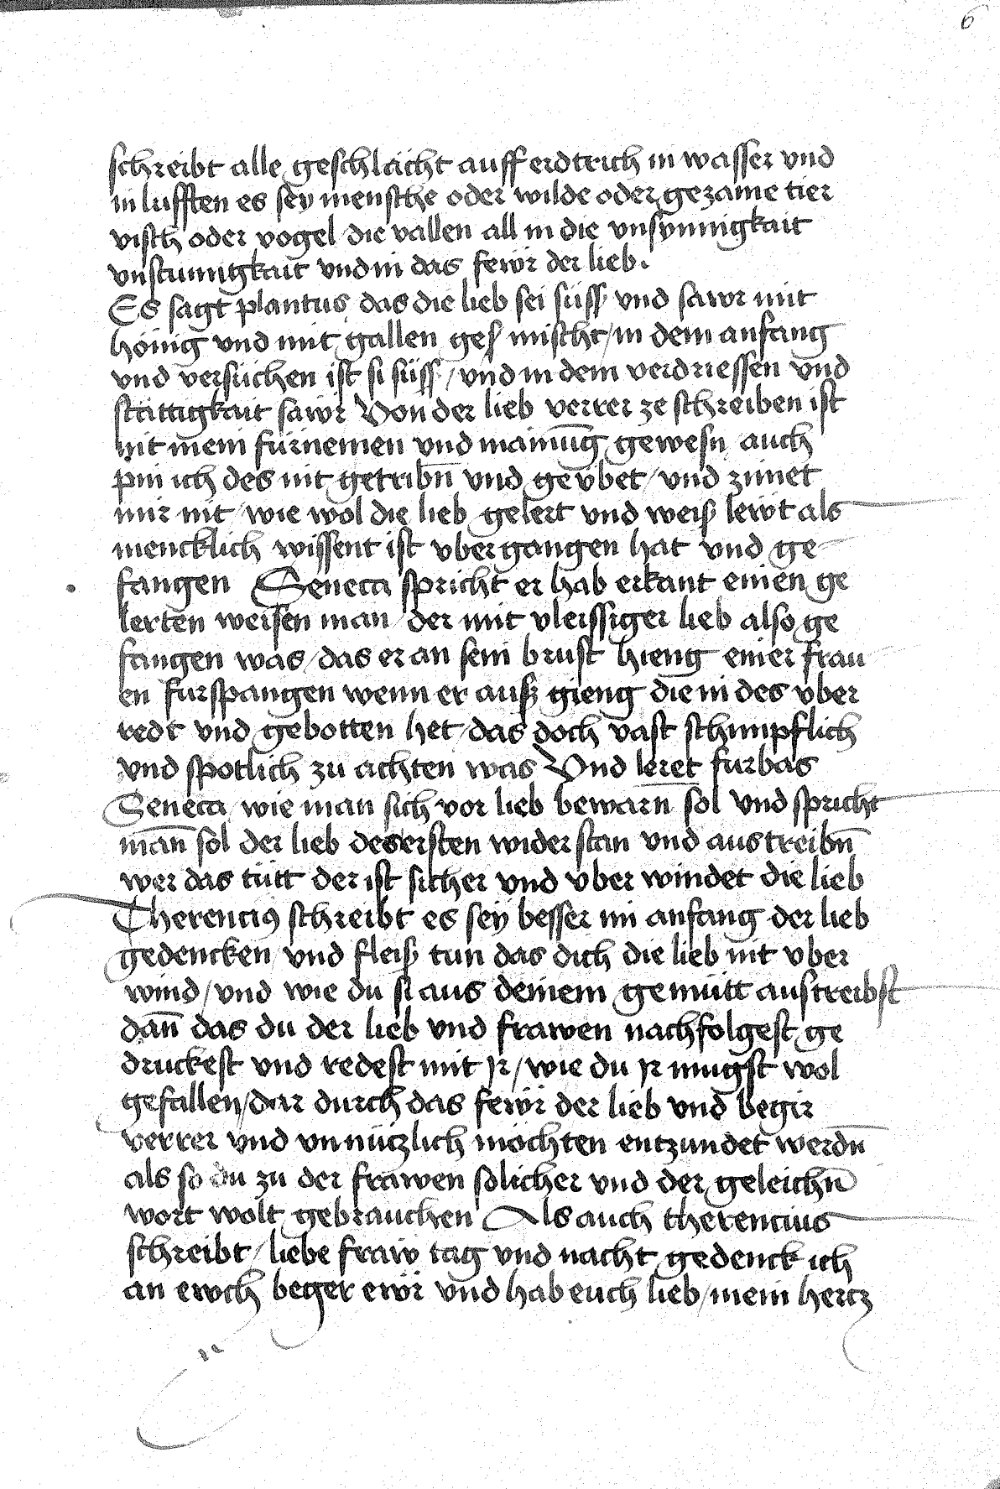 6
schreibt alle geschlächt auff erdtrich in wasser vnd
in lufften es sey mensche oder wilde oder gezame tier
visch oder vogel die vallen all in die vnsynnigkait
vnstümigkait vnd in das fewr̈ der lieb.
Es sagt plantus das die lieb sei süss vnd sawr mit
hönig vnd mit gallen geß mischt / in dem anfang
vnd versüchen ist si süss / vnd in dem verdriessen vnd
stättigkait sawr̈ Von der lieb verrer ze schreiben ist
nit mein fürnemen vnd mainūg gewesn auch
pin ich des nit getribn̄ vnd gev̈bet / vnd zimet
mir nit / wie wol die lieb gelert vnd weiß lewt als
mencklich wissent ist vbergangen hat vnd ge
fangen Seneca spricht er hab erkant einen ge
lerten weisen man / der mit vleissiger lieb also ge
fangen was / das er an sein brust hieng einer frau
en furspangen wenn er auß gieng die in des vber
redt vnd gebotten het / das doch vast schimpflich
vnd spotlich zu achten was Vnd leret furbas
Seneca / wie man sich vor lieb bewarn̄ sol vnd spricht
man̄ sol der lieb des ersten widerstan vnd austreibn̄
wer das tütt der ist sicher vnd vber windet die lieb
Therencius schreibt es seÿ besser im anfang der lieb
gedencken vnd fleiß tun das dich die lieb nit vber
wind / vnd wie du si aus deinem gemütt austreibst
dan̄ das du der lieb vnd frawen nachfolgest ge
druckest vnd redest mit jr / wie du jr mugst wol
gefallen / dar durch das fewr̈ der lieb vnd begir
verrer vnd vnnüczlich möchten entzundet werdn̄
als so du zu der frawen solicher vnd der geleichn̄
wort wolt gebrauchen Als auch therencius
schreibt / liebe fraw tag vnd nacht gedenck ich
an ewch beger ewr̈ vnd hab euch lieb / mein hercz